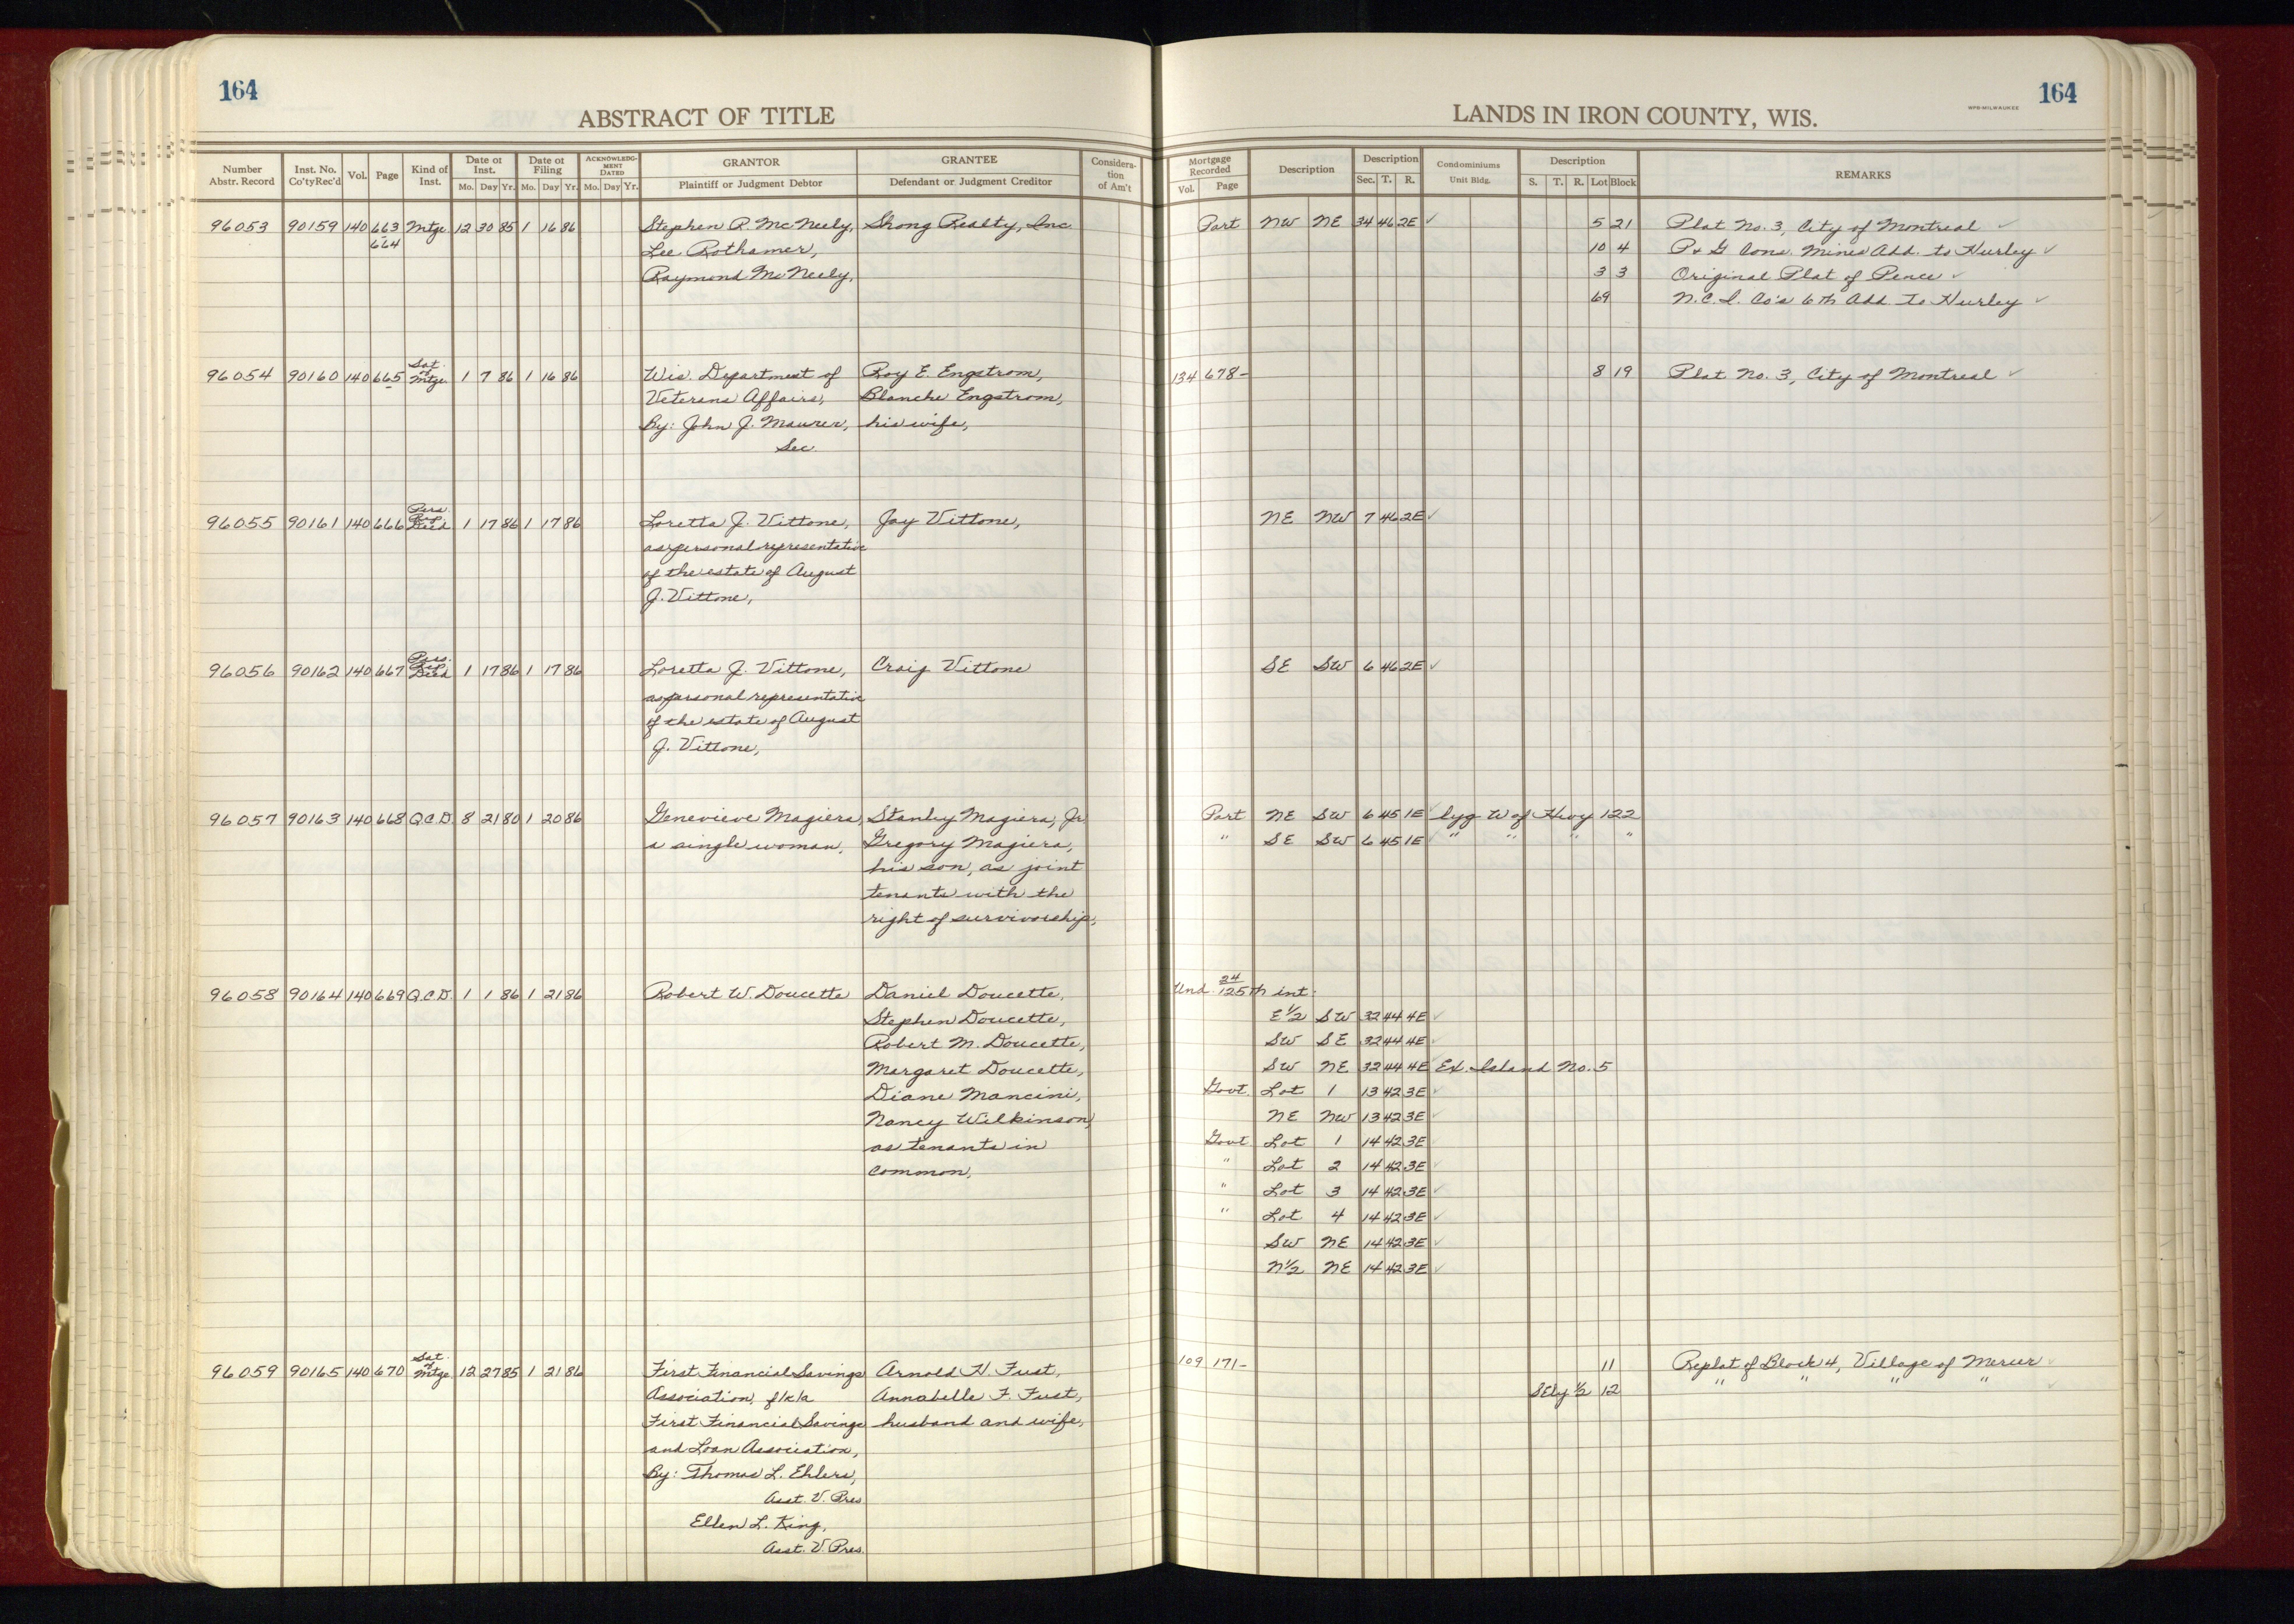 164
ABSTRACT OF TITLE
Number Abstr. Record
Inst. No. Co'ty Rec'd
Vol.
Page
Kind of Inst.
Date of Inst. Mo. Day Yr.
Date of Filing Mo. Day Yr.
ACKNOWLEDGMENT DATED Mo. Day Yr.
GRANTOR Plaintiff or Judgment Debtor
GRANTEE Defendant or Judgment Creditor
Consideration of Am't
96053 90159 140 663 Mtge 12 30 85 1 16 86 Stephen P. McNeely, Shong Realty, Inc.
664 Lee Rothamer,
Raymond McNeely,
96054 90160 140 665 Sat. of Mtge 1 7 86 1 16 86 Wis. Department of Roy E. Engstrom,
Veterans Affairs, Blanche Engstrom,
By: John J. Maurer, his wife,
Sec.
96055 90161 140 666 Pers. Rep. Deed 1 17 86 1 17 86 Loretta J. Vittone, Jay Vittone,
as personal representative
of the estate of August
J. Vittone,
96056 90162 140 667 Pers. Rep. Deed 1 17 86 1 17 86 Loretta J. Vittone, Craig Vittone
as personal representative
of the estate of August
J. Vittone,
96057 90163 140 668 Q.C.D. 8 21 80 1 20 86 Genevieve Magiera, Stanley Magiera, Jr.
a single woman, Gregory Magiera,
his son, as joint
tenants with the
right of survivorship,
96058 90164 140 669 Q.C.D. 1 1 86 1 21 86 Robert W. Doucette Daniel Doucette,
Stephen Doucette,
Robert M. Doucette,
Margaret Doucette,
Diane Mancini,
Nancy Wilkinson,
as tenants in
common,
96059 90165 140 670 Sat. of Mtge 12 27 85 1 21 86 First Financial Savings Arnold H. Fust,
Association, f/k/a Annabelle F. Fust,
First Financial Savings husband and wife,
and Loan Association,
By: Thomas L. Ehlers,
Asst. V. Pres.
Ellen L. King,
Asst. V. Pres.
164
WPB-MILWAUKEE
LANDS IN IRON COUNTY, WIS.
Mortgage Recorded Vol. Page
Description
Description Sec. T. R.
Condominiums Unit Bldg.
Description S. T. R. Lot Block
REMARKS
Part NW NE 34 46 2E ✓ 5 21 Plat No. 3, City of Montreal ✓
10 4 P & G Cons. Mines Add. to Hurley ✓
3 3 Original Plat of Pence ✓
69 N.C.I. Co's 6th Add to Hurley ✓
134 678- 8 19 Plat No. 3, City of Montreal ✓
NE NW 7 46 2E ✓
SE SW 6 46 2E ✓
Part NE SW 6 45 1E ✓ lyg W of Hwy 122
" SE SW 6 45 1E ✓ " " " "
Und. 24/125th int.
E½ SW 32 44 4E ✓
SW SE 32 44 4E ✓
SW NE 32 44 4E ✓ Ex. Island No. 5
Govt. Lot 1 13 42 3E ✓
NE NW 13 42 3E ✓
Govt. Lot 1 14 42 3E ✓
" Lot 2 14 42 3E ✓
" Lot 3 14 42 3E ✓
" Lot 4 14 42 3E ✓
SW NE 14 42 3E ✓
N½ NE 14 42 3E ✓
109 171- 11 Replat of Block 4, Village of Mercer ✓
SEly ½ 12 " " " " ✓